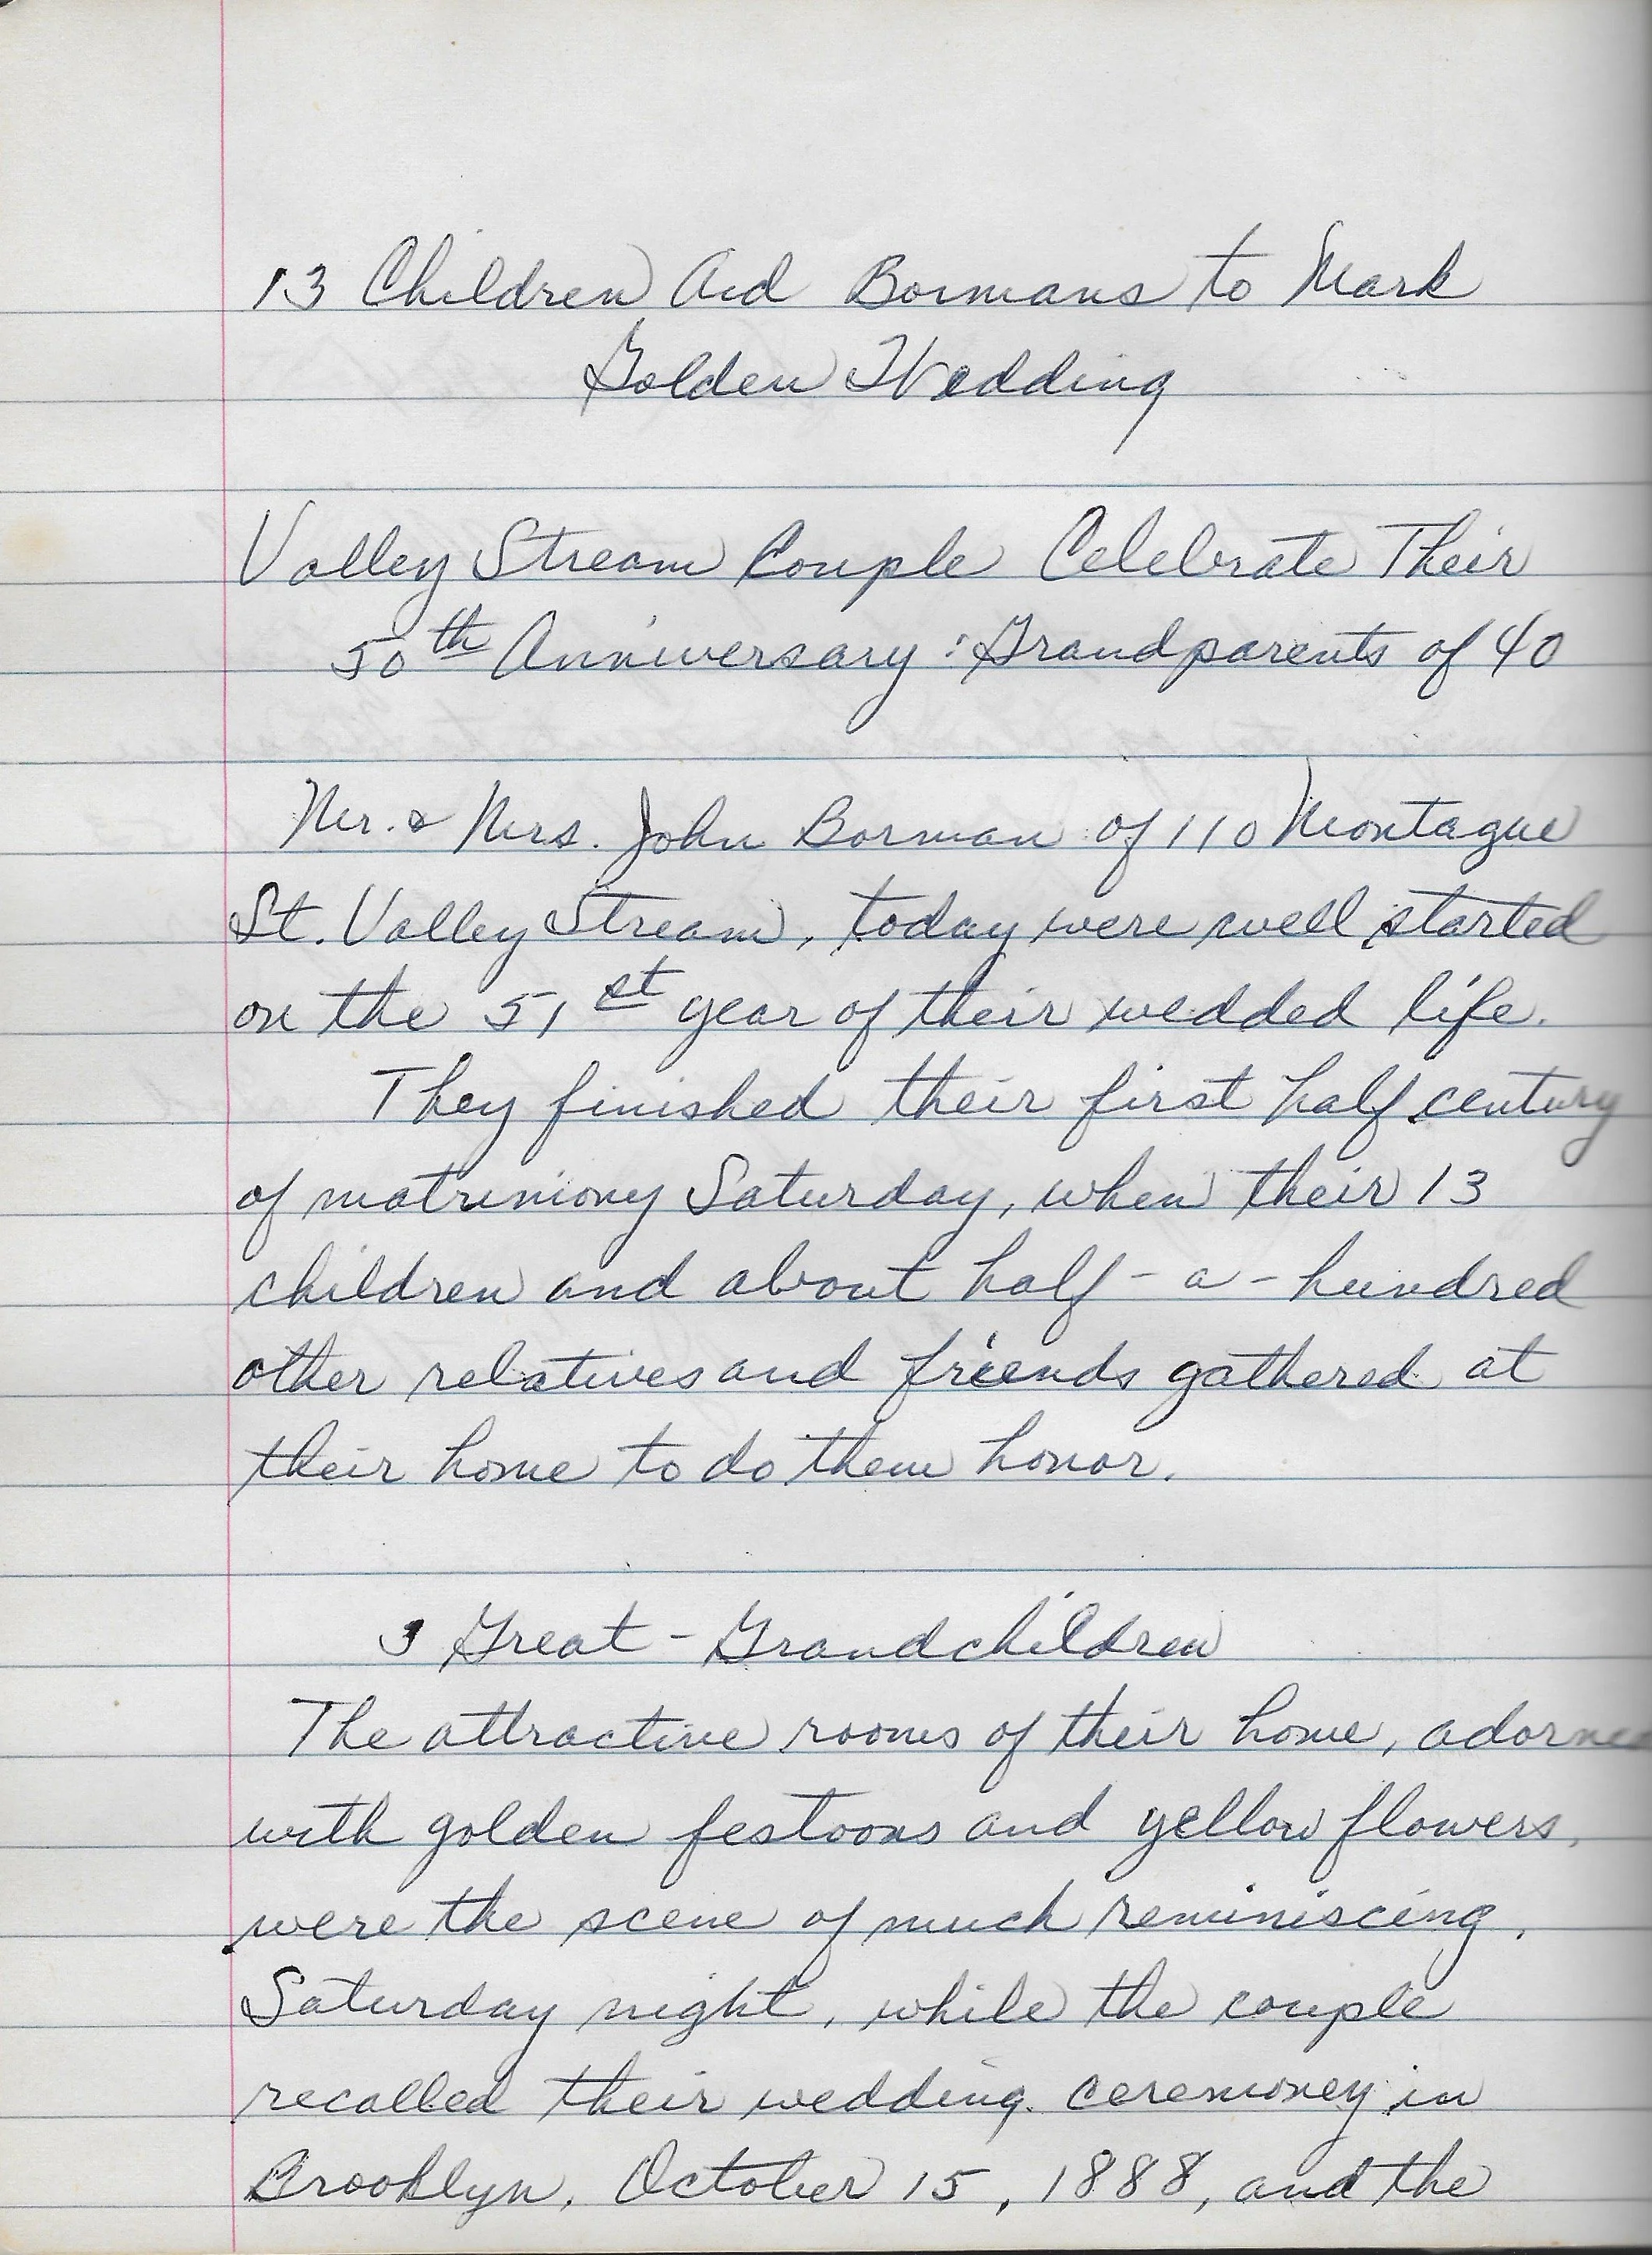 13 Children Aid Bormans to Mark
Golden Wedding
Valley Stream Couple Celebrate Their
50th Anniversary: Grandparents of 40
Mr. & Mrs. John Borman of 110 Montague
St. Valley Stream, today were well started
on the 51st year of their wedded life.
They finished their first half century
of matrimony Saturday, when their 13
children and about half-a-hundred
other relatives and friends gathered at
their home to do them honor.
3 Great-Grandchildren
The attractive rooms of their home, adorned
with golden festoons and yellow flowers,
were the scene of much reminiscing,
Saturday night, while the couple
recalled their wedding ceremoney in
Brooklyn, October 15, 1888, and the